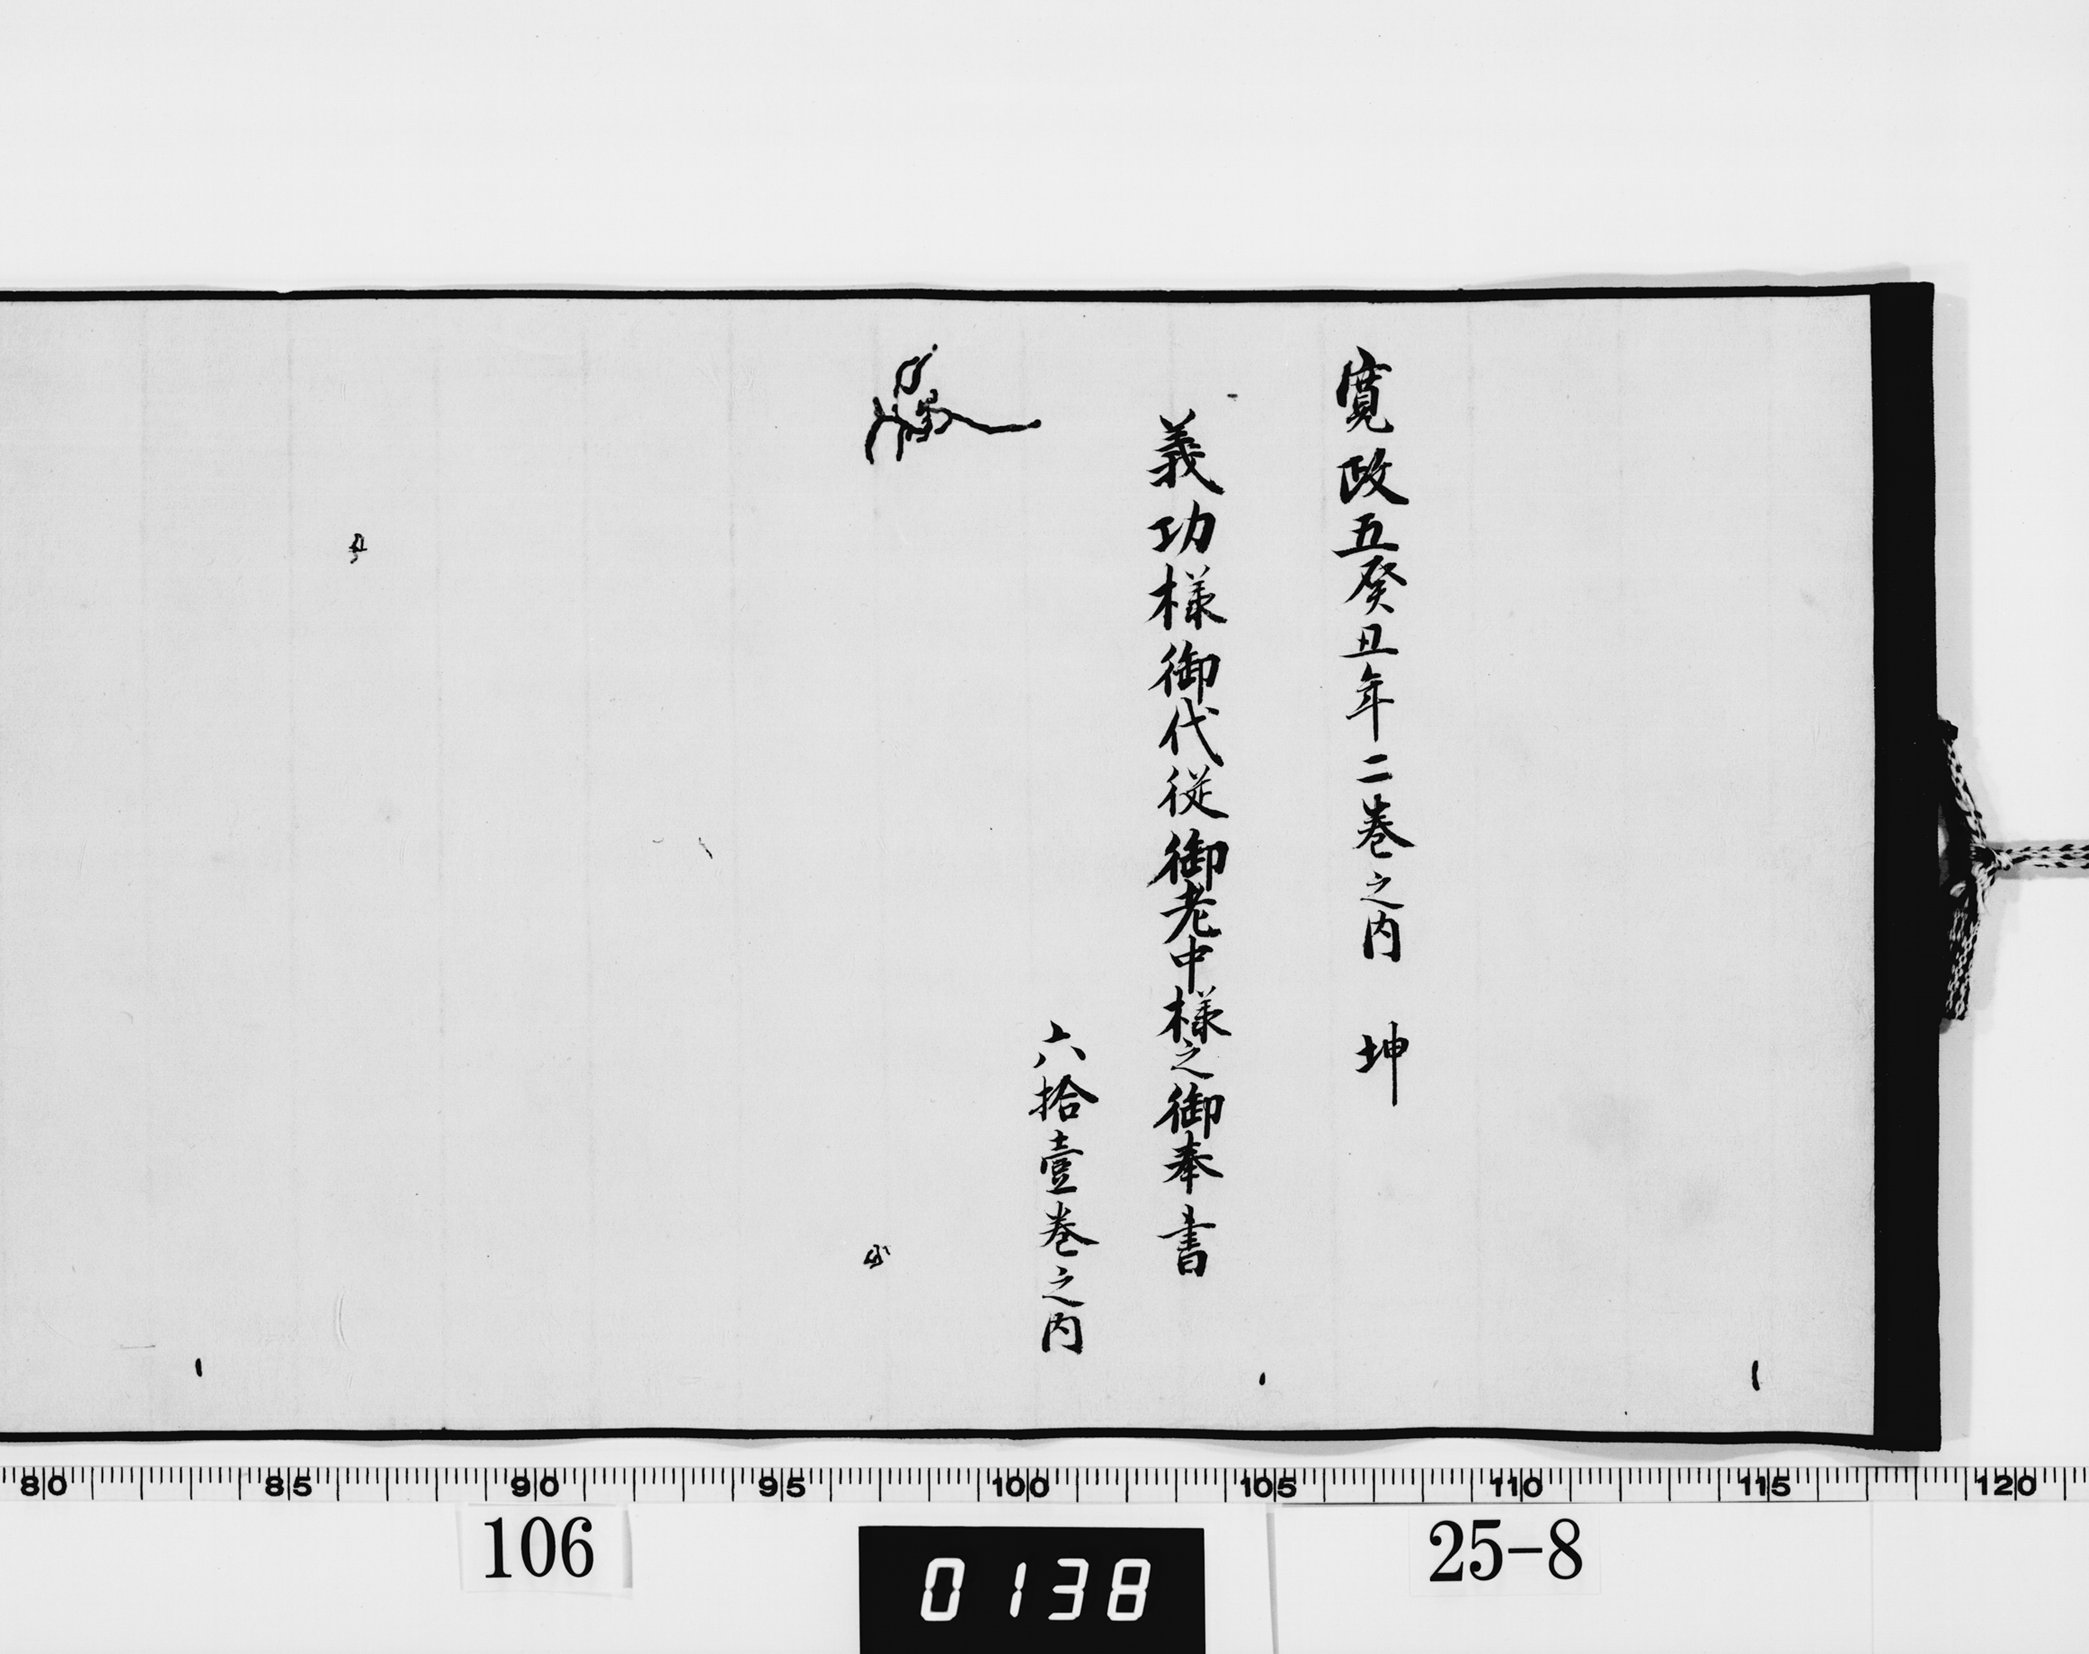 寛政五癸丑年二巻之内　坤
義功様御代従御老中様之御奉書
六拾壹巻之内
80 85 90 95 100 105 110 115 120
106
0138
25-8